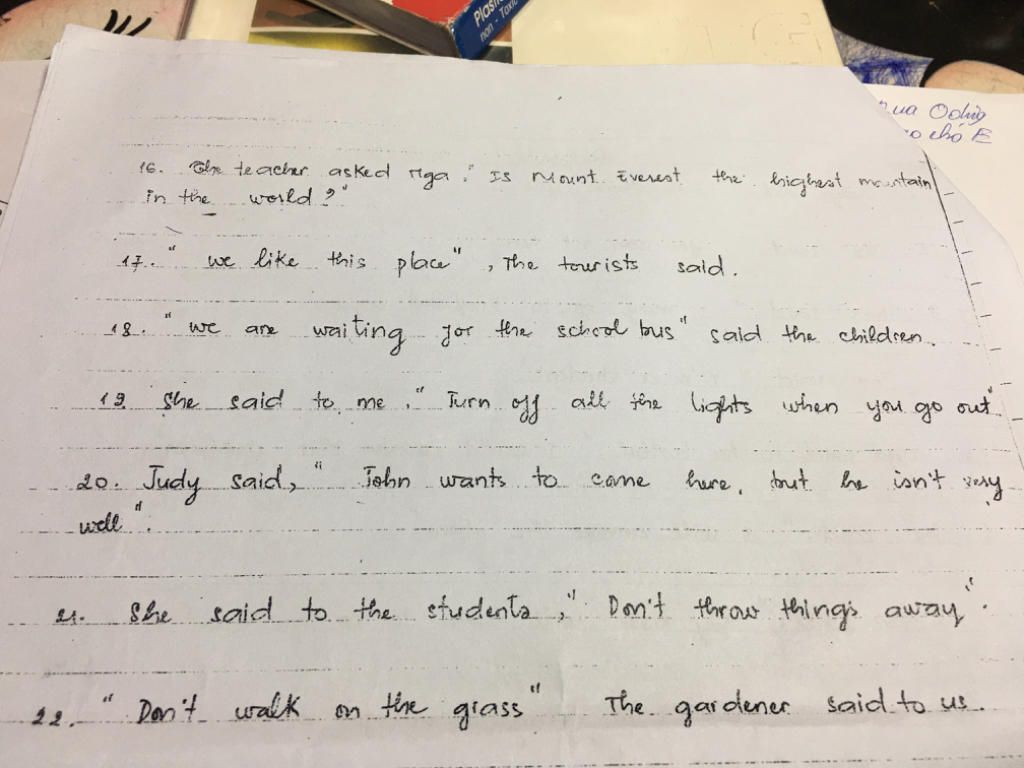 Plasti
non - Toxic
ua
cho E
16. The teacher asked Nga, "Is Mount Everest the highest mountain
in the world?"
17. "We like this place", The tourists said.
18. "We are waiting for the school bus" said the children.
19. She said to me, "Turn off all the lights when you go out"
20. Judy said, "John wants to come here, but he isn't very
well".
21. She said to the students, "Don't throw things away".
22. "Don't walk on the grass" The gardener said to us.